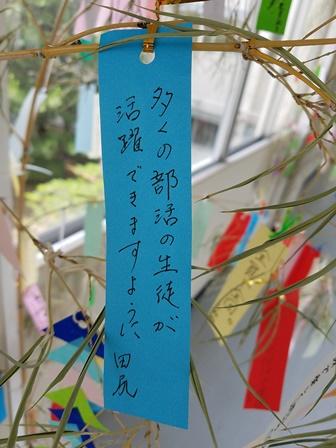 多くの部活の生徒が
活躍できますように 田尻